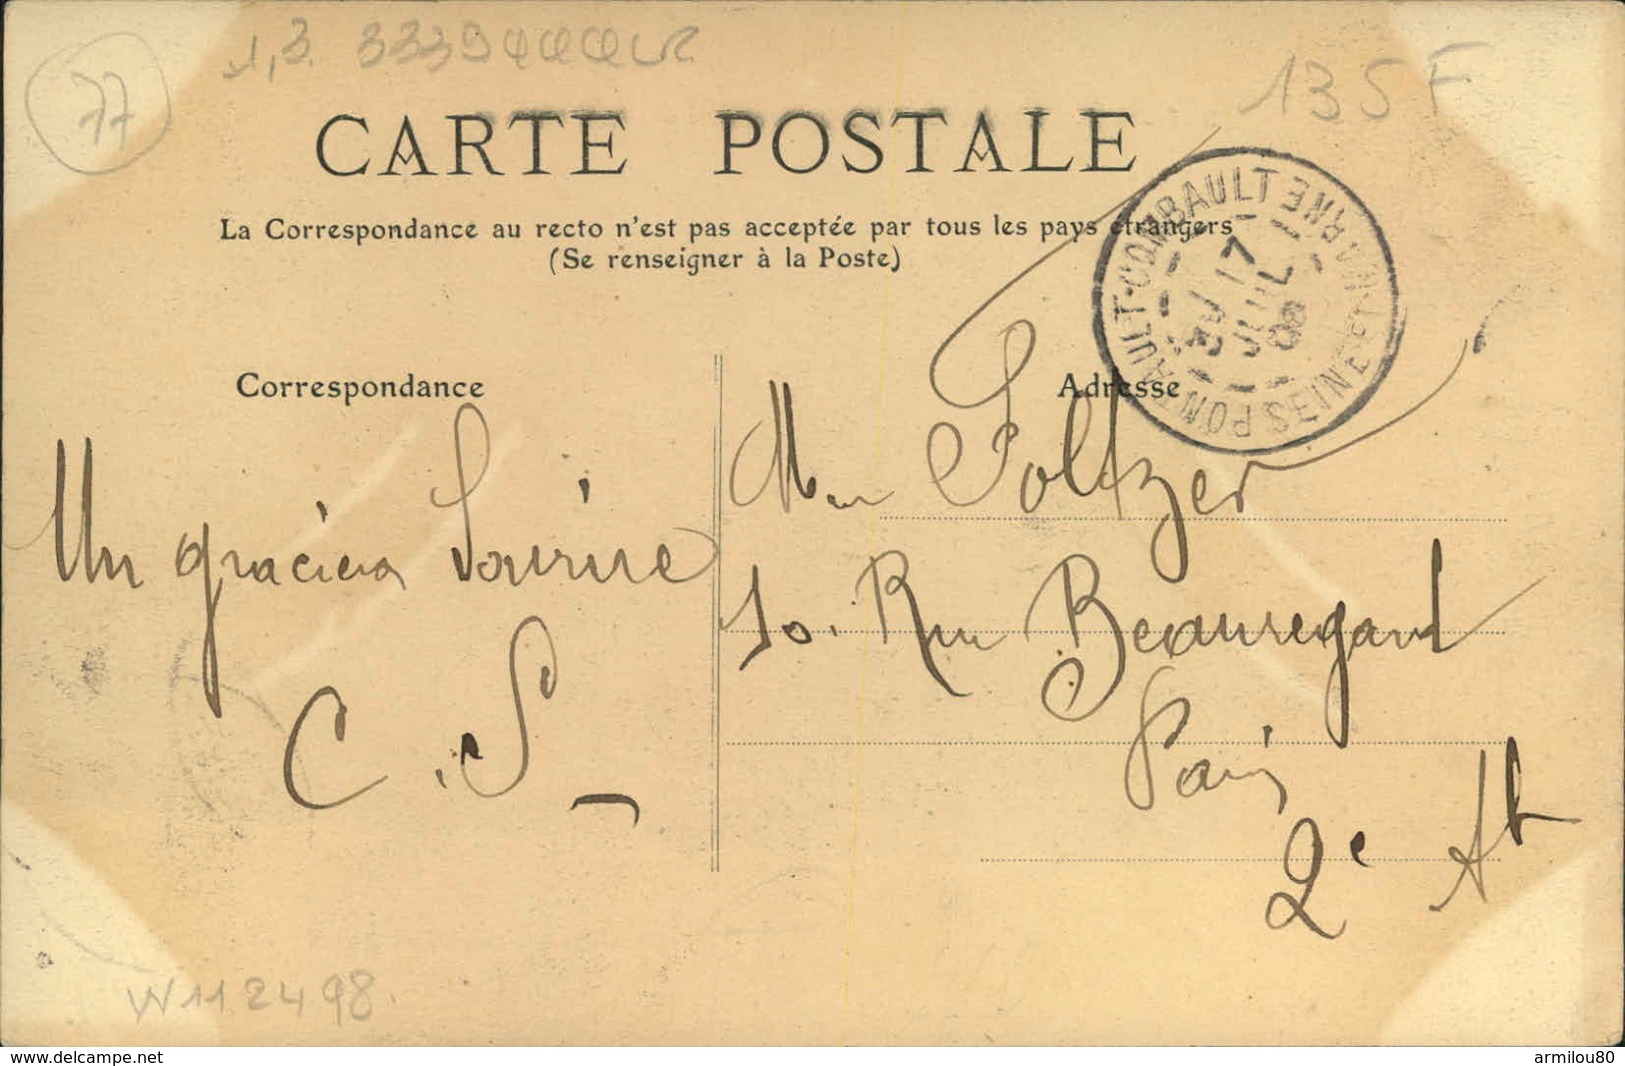 77
135 F
CARTE POSTALE
La Correspondance au recto n'est pas acceptée par tous les pays étrangers
(Se renseigner à la Poste)
PONTAULT-COMBAULT SEINE-ET-MARNE
17
JUIL
08
Correspondance
Adresse
Un gracieux Sourire
C.S
Mr Soltzer
10. Rue Beauregard
Paris
2e At
W112498.
www.delcampe.net
armilou80